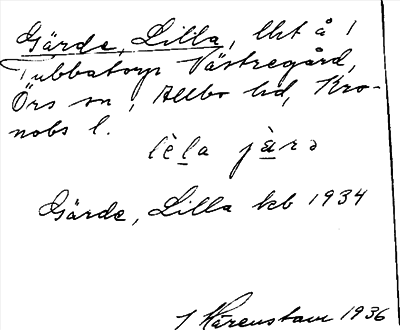 Gärde, Lilla, lht å 1
Tubbatorp Västregård,
Örs sn, Allbo hd, Kro-
nobs l.
lèla jàrə
Gärde, Lilla kb 1934
J Härenstam 1936